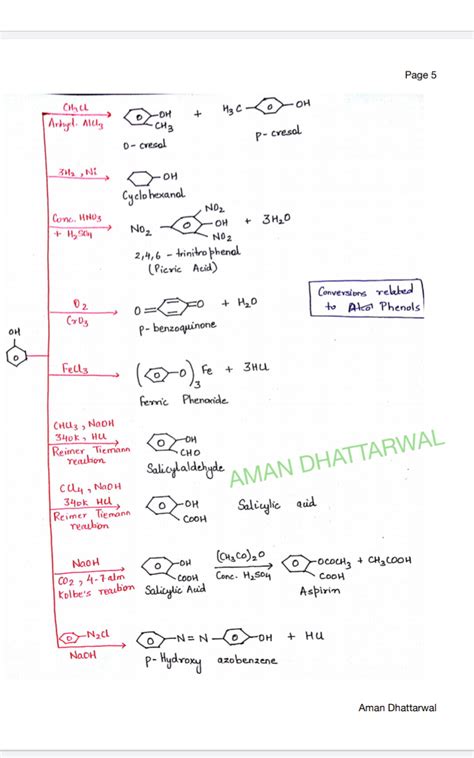 Page 5
CH3Cl
Anhyd. AlCl3
OH
CH3
o-cresol
+
H3C
OH
p-cresol
3H2, Ni
OH
Cyclohexanol
Conc. HNO3
+ H2SO4
NO2
NO2
OH
NO2
+ 3H2O
2,4,6-trinitrophenol
(Picric Acid)
Conversions related
to Phenols
O2
CrO3
O=
=O
+ H2O
p-benzoquinone
OH
FeCl3
( -O)3 Fe + 3HCl
Ferric Phenoxide
CHCl3, NaOH
340K, HCl
Reimer Tiemann
reaction
OH
CHO
Salicylaldehyde
AMAN DHATTARWAL
CCl4, NaOH
340K HCl
Reimer Tiemann
reaction
OH
COOH
Salicylic acid
NaOH
CO2, 4-7 atm
Kolbe's reaction
OH
COOH
Salicylic Acid
(CH3CO)2O
Conc. H2SO4
OCOCH3 + CH3COOH
COOH
Aspirin
N2Cl
NaOH
-N=N-
-OH + HCl
p-Hydroxy azobenzene
Aman Dhattarwal